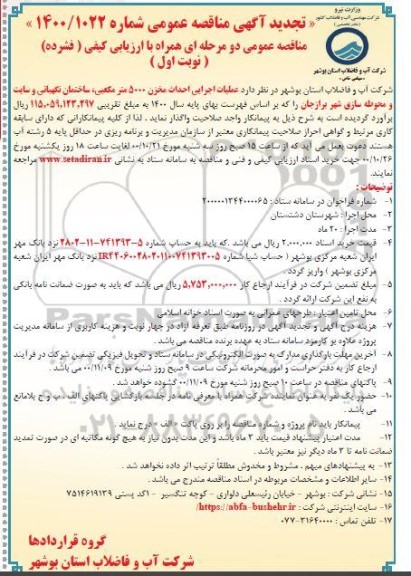 وزارت نیرو
شرکت مهندسی آب و فاضلاب کشور
شرکت آب و فاضلاب استان بوشهر
« تجدید آگهی مناقصه عمومی شماره 1400/1022 »
مناقصه عمومی دو مرحله ای همراه با ارزیابی کیفی ( فشرده )
( نوبت اول )
شرکت آب و فاضلاب استان بوشهر در نظر دارد عملیات اجرایی احداث مخزن 5000 متر مکعبی، ساختمان نگهبانی و سایت
و محوطه سازی شهر برازجان را که بر اساس فهرست بهای پایه سال 1400 به مبلغ تقریبی 115,059,143,297 ریال
برآورد گردیده است به شرح ذیل به پیمانکار واجد صلاحیت واگذار نماید . لذا از کلیه پیمانکارانی که دارای سابقه
کاری مرتبط و گواهی احراز صلاحیت پیمانکاری معتبر از سازمان مدیریت و برنامه ریزی در حداقل پایه 5 رشته آب
هستند دعوت بعمل می آید که از ساعت 15 صبح روز سه شنبه مورخ 00/10/21 لغایت ساعت 18 روز یکشنبه مورخ
00/10/26 جهت خرید اسناد ارزیابی کیفی و فنی و مناقصه به سامانه ستاد به نشانی www.setadiran.ir مراجعه
نمایند.
توضیحات :
1- شماره فراخوان در سامانه ستاد : 2000001244000065
2- محل اجرا : شهرستان دشتستان
3- مدت اجرا : 20 ماه
4- قیمت خرید اسناد 2,000,000 ریال می باشد .که باید به حساب شماره 5-741393-11-2802 نزد بانک مهر
ایران شعبه مرکزی بوشهر ( حساب شبا شماره نزد بانک مهر ایران شعبه
مرکزی بوشهر ) واریز گردد .
5- مبلغ تضمین شرکت در فرآیند ارجاع کار 5,753,000,000 ریال می باشد که باید به صورت ضمانت نامه بانکی
به نفع این شرکت ارائه گردد .
6- محل تامین اعتبار : طرحهای عمرانی به صورت اسناد خزانه اسلامی
7- هزینه درج آگهی و تجدید آگهی در روزنامه طبق تعرفه آزاد در چهار نوبت و هزینه کاربری از سامانه مدیریت
پروژه علاوه بو کارمزد سامانه ستاد به عهده برنده مناقصه می باشد.
8- آخرین مهلت بارگذاری مدارک به صورت الکترونیکی در سامانه ستاد و تحویل فیزیکی تضمین شرکت در فرآیند
ارجاع کار به دفتر حراست و امور محرمانه شرکت ساعت 9 صبح روز شنبه مورخ 00/11/09 می باشد .
9- پاکتهای مناقصه در ساعت 10 صبح روز شنبه مورخ 00/11/09 گشوده خواهد شد .
10- حضور یک نفر به عنوان نماینده شرکت همراه با معرفی نامه در جلسه بازگشایی پاکتهای الف ، ب و ج بلامانع
می باشد .
11- پیمانکار باید نام پروژه و شماره مناقصه را بر روی پاکت « الف » درج نماید .
12- مدت اعتبار پیشنهاد قیمت باید 3 ماه باشد و این مدت بدون نیاز به هیچ گونه مکاتبه ای در صورت تمدید
ضمانت نامه تا 3 ماه دیگر نیز معتبر باشد.
13- به پیشنهادهای مبهم ، مشروط و مخدوش مطلقاً ترتیب اثر داده نخواهد شد .
14- سایر اطلاعات و مشخصات مربوطه در اسناد مناقصه مندرج می باشد .
15- نشانی شرکت : بوشهر - خیابان رئیسعلی دلواری - کوچه تنگسیر - کد پستی 7514619139
16- سایت اینترنتی شرکت : https://abfa-bushehr.ir/
17- تلفن تماس : 31640000-077
گروه قراردادها
شرکت آب و فاضلاب استان بوشهر